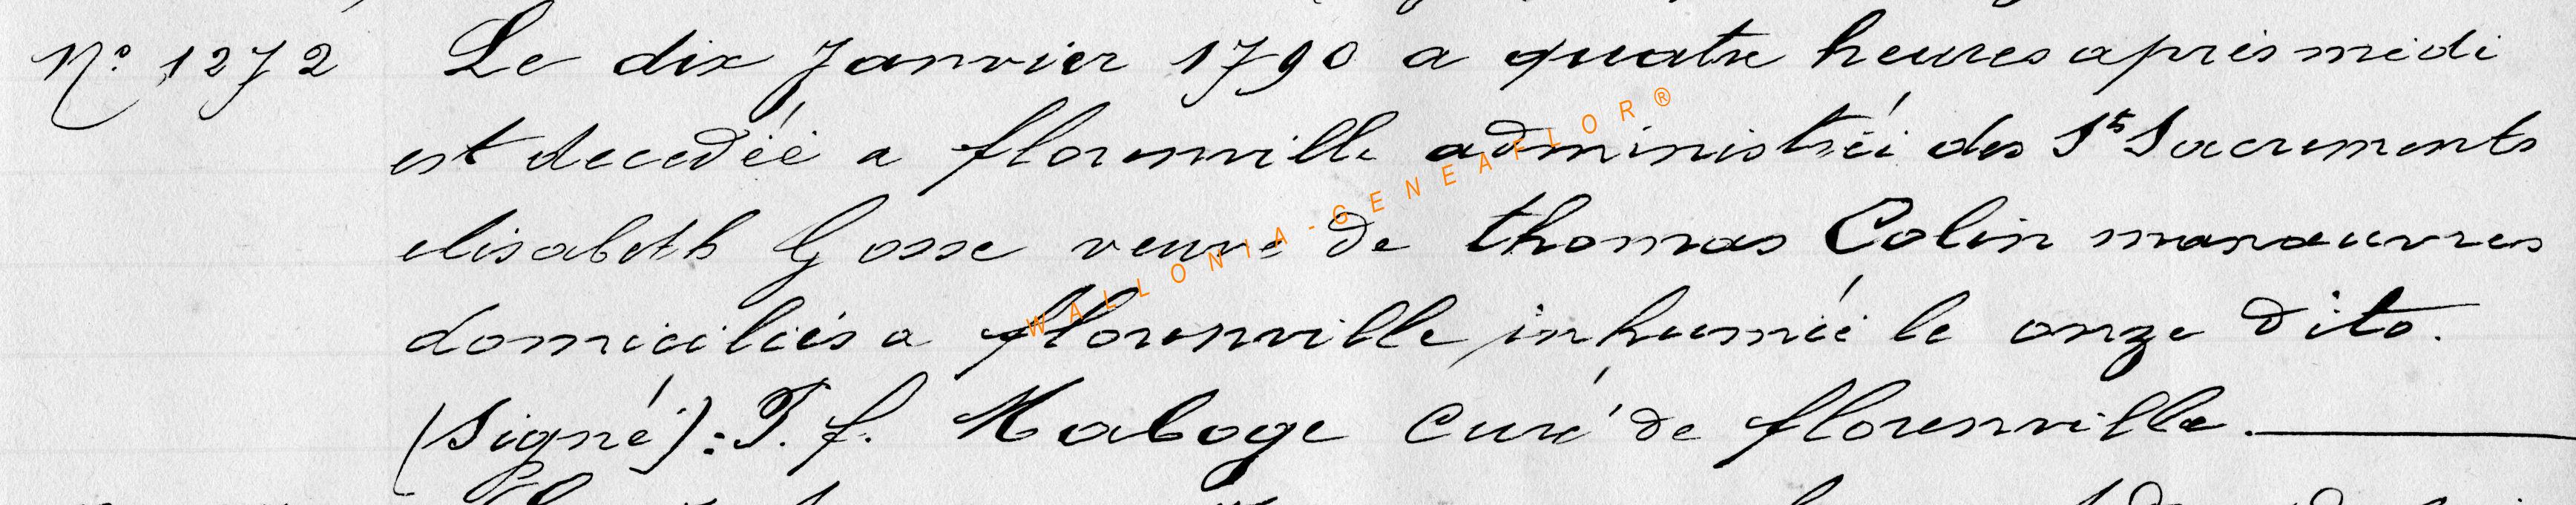 N° 1272 Le dix Janvier 1790 a quatre heures après midi
est decedéé a florenville administréé des Sts Sacrements
elisabeth Gosse veuve de thomas Colin manœuvres
domiciliés a florenville inhumée le onze dito.
(Signé): J. f. Maboge Curé de florenville.
WALLONIA-GENEAFLOR®